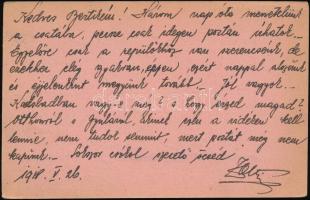 Kedves Bertikém! Három nap óta menetelünk
a csatába, persze csak idegen postán írhatok...
Egyelőre csak a repülőkhöz van szerencsénk, de
ezekhez elég gyakran, éppen ezért nappal alszunk
és éjjelenként megyünk tovább. Jól vagyok...
Karlsbadban vagy-e még s hogy érzed magad?
Otthonról s Gyuláról, akinek ezen a vidéken kell
lennie, nem tudok semmit, mert postát még nem
kapunk. – Sokszor csókol szerető öcséd
1918. V. 26.